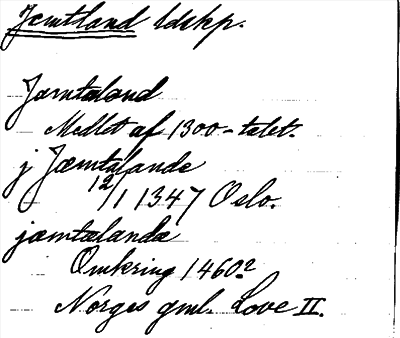 Jemtland ldskp.
Jamtaland
Midlet af 1300-talet.
j Jæmtalande
12/1 1347 Oslo.
jæmtalandæ
Omkring 1460?
Norges gml. Love II.